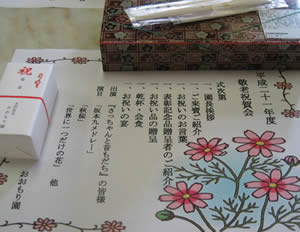 平成二十一年度
敬老祝賀会
式次第
一 園長挨拶
一 ご来賓ご紹介
一 お祝いのお言葉
一 表彰記念品贈呈者のご紹介
一 お祝い品の贈呈
一 乾杯・会食
一 お祝いの宴
出演 「さっちゃんと音もだち」の皆様
演目 「坂本九メドレー」
「秋桜」
「世界に一つだけの花」 他
おおもり園
祝